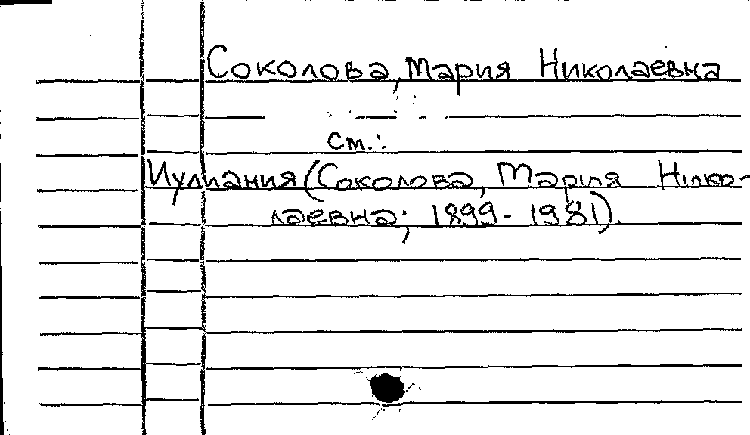 Соколова, Мария Николаевна
см.:
Иулиания (Соколова, Мария Нико-
лаевна; 1899-1981).